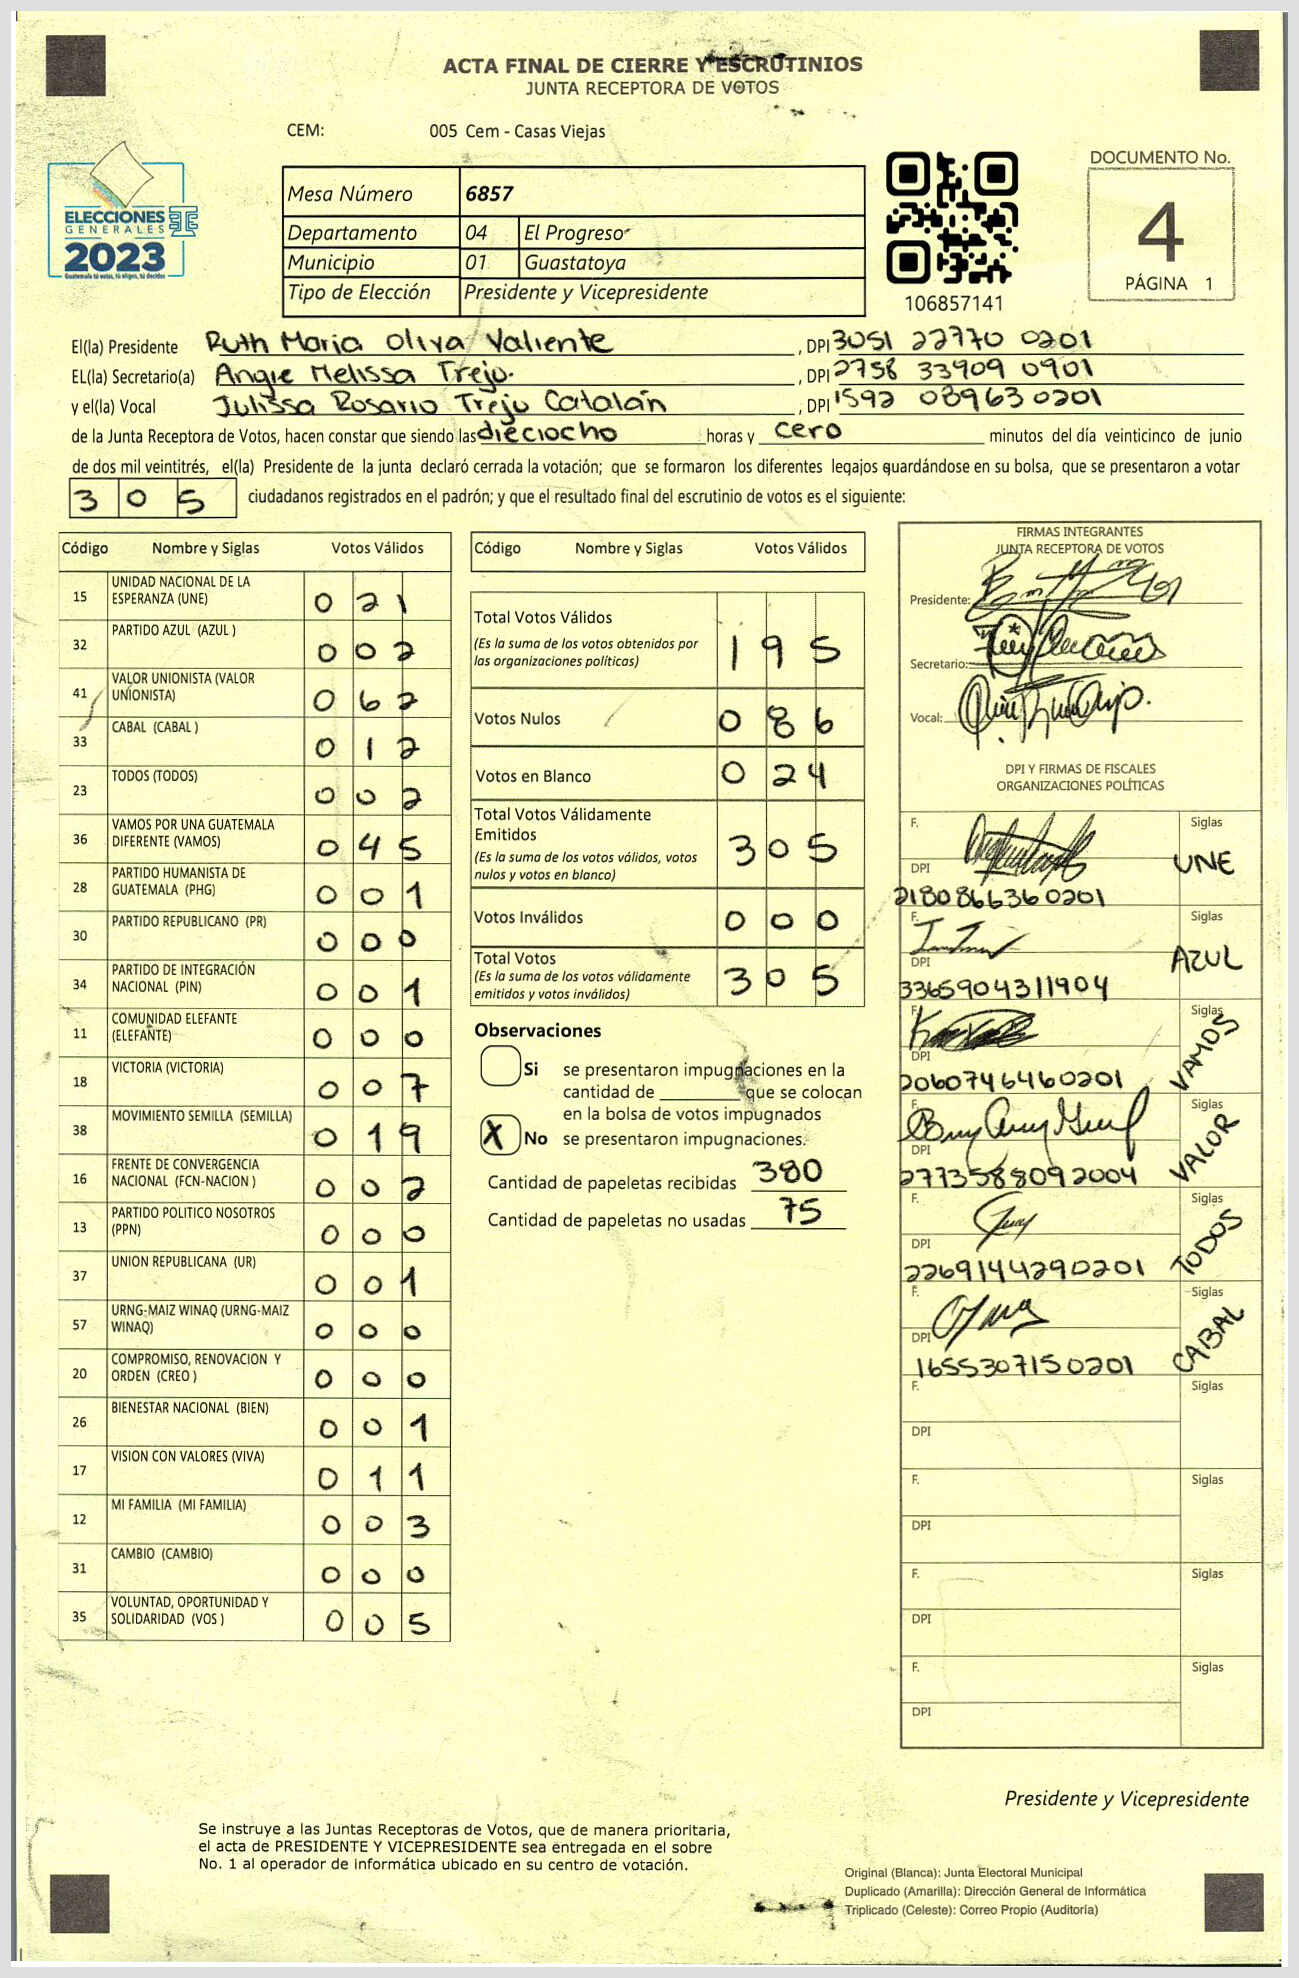 ACTA FINAL DE CIERRE Y ESCRUTINIOS
JUNTA RECEPTORA DE VOTOS
CEM: 005 Cem - Casas Viejas
ELECCIONES
GENERALES
2023
Guatemala tú votas, tú eliges, tú decides
Mesa Número 6857
Departamento 04 El Progreso
Municipio 01 Guastatoya
Tipo de Elección Presidente y Vicepresidente
106857141
DOCUMENTO No.
4
PÁGINA 1
El(la) Presidente Ruth Maria Oliva Valiente , DPI 3051 22770 0201
EL(la) Secretario(a) Angie Melissa Trejo. , DPI 2758 33909 0901
y el(la) Vocal Julissa Rosario Trejo Catalán , DPI 1592 089630201
de la Junta Receptora de Votos, hacen constar que siendo las dieciocho horas y cero minutos del día veinticinco de junio
de dos mil veintitrés, el(la) Presidente de la junta declaró cerrada la votación; que se formaron los diferentes legajos guardándose en su bolsa, que se presentaron a votar
305 ciudadanos registrados en el padrón; y que el resultado final del escrutinio de votos es el siguiente:
Código Nombre y Siglas Votos Válidos
15 UNIDAD NACIONAL DE LA ESPERANZA (UNE) 021
32 PARTIDO AZUL (AZUL ) 002
41 VALOR UNIONISTA (VALOR UNIONISTA) 062
33 CABAL (CABAL ) 012
23 TODOS (TODOS) 002
36 VAMOS POR UNA GUATEMALA DIFERENTE (VAMOS) 045
28 PARTIDO HUMANISTA DE GUATEMALA (PHG) 001
30 PARTIDO REPUBLICANO (PR) 000
34 PARTIDO DE INTEGRACIÓN NACIONAL (PIN) 001
11 COMUNIDAD ELEFANTE (ELEFANTE) 000
18 VICTORIA (VICTORIA) 007
38 MOVIMIENTO SEMILLA (SEMILLA) 019
16 FRENTE DE CONVERGENCIA NACIONAL (FCN-NACION ) 002
13 PARTIDO POLITICO NOSOTROS (PPN) 000
37 UNION REPUBLICANA (UR) 001
57 URNG-MAIZ WINAQ (URNG-MAIZ WINAQ) 000
20 COMPROMISO, RENOVACION Y ORDEN (CREO ) 000
26 BIENESTAR NACIONAL (BIEN) 001
17 VISION CON VALORES (VIVA) 011
12 MI FAMILIA (MI FAMILIA) 003
31 CAMBIO (CAMBIO) 000
35 VOLUNTAD, OPORTUNIDAD Y SOLIDARIDAD (VOS ) 005
Código Nombre y Siglas Votos Válidos
Total Votos Válidos
(Es la suma de los votos obtenidos por las organizaciones políticas) 195
Votos Nulos 086
Votos en Blanco 024
Total Votos Válidamente Emitidos
(Es la suma de los votos válidos, votos nulos y votos en blanco) 305
Votos Inválidos 000
Total Votos
(Es la suma de los votos válidamente emitidos y votos inválidos) 305
Observaciones
Si se presentaron impugnaciones en la
cantidad de ________ que se colocan
en la bolsa de votos impugnados
X No se presentaron impugnaciones.
Cantidad de papeletas recibidas 380
Cantidad de papeletas no usadas 75
FIRMAS INTEGRANTES
JUNTA RECEPTORA DE VOTOS
Presidente:
Secretario:
Vocal:
DPI Y FIRMAS DE FISCALES
ORGANIZACIONES POLÍTICAS
F. Siglas UNE
DPI 2180866360201
F. Siglas AZUL
DPI 3365904311904
F. Siglas VAMOS
DPI 2060746460201
F. Siglas VALOR
DPI 2773588092004
F. Siglas TODOS
DPI 2269144290201
F. Siglas CABAL
DPI 1655307150201
F. Siglas
DPI
F. Siglas
DPI
F. Siglas
DPI
F. Siglas
DPI
Presidente y Vicepresidente
Se instruye a las Juntas Receptoras de Votos, que de manera prioritaria,
el acta de PRESIDENTE Y VICEPRESIDENTE sea entregada en el sobre
No. 1 al operador de informática ubicado en su centro de votación.
Original (Blanca): Junta Electoral Municipal
Duplicado (Amarilla): Dirección General de Informática
Triplicado (Celeste): Correo Propio (Auditoría)